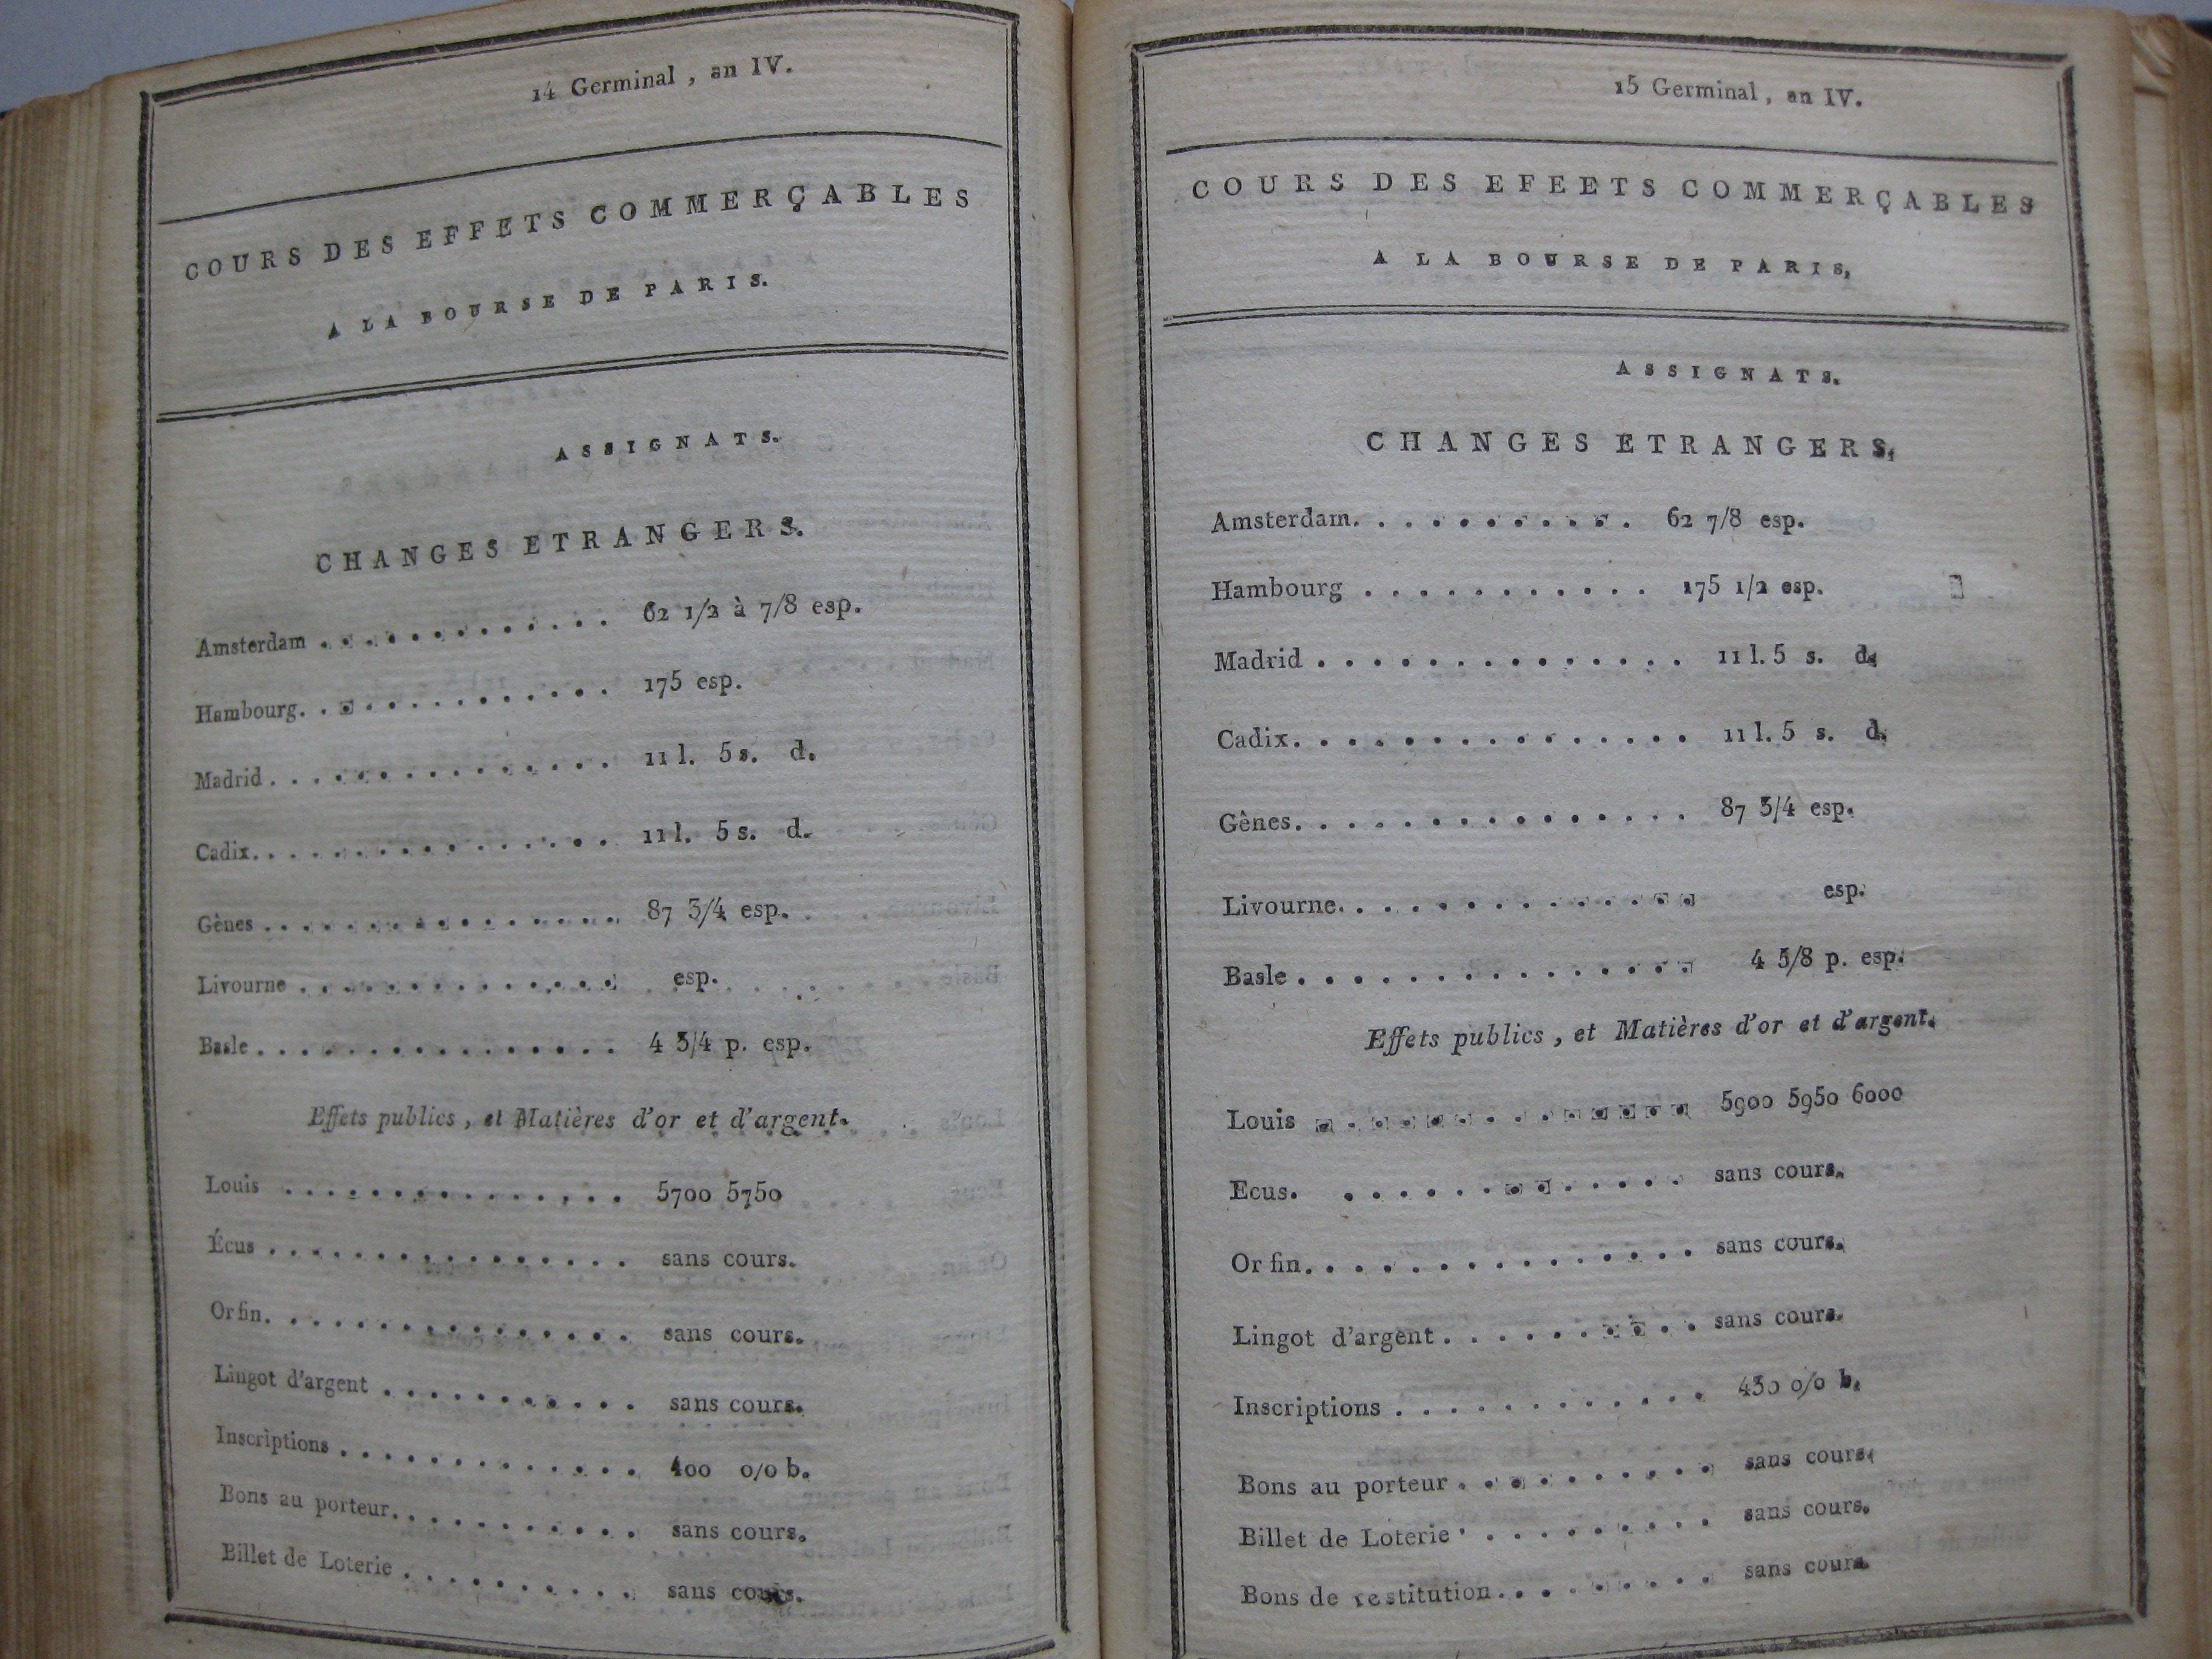 14 Germinal , an IV.
COURS DES EFFETS COMMERÇABLES
A LA BOURSE DE PARIS.
ASSIGNATS.
CHANGES ETRANGERS.
Amsterdam . . . . . . . . . . . . . 62 1/2 à 7/8 esp.
Hambourg. . . . . . . . . . . . . 175 esp.
Madrid . . . . . . . . . . . . . . 11 l. 5 s. d.
Cadix. . . . . . . . . . . . . . . 11 l. 5 s. d.
Gènes . . . . . . . . . . . . . . . 87 3/4 esp.
Livourne . . . . . . . . . . . . . esp.
Basle . . . . . . . . . . . . . . . 4 3/4 p. esp.
Effets publics , et Matières d'or et d'argent.
Louis . . . . . . . . . . . . . . 5700 5750
Écus . . . . . . . . . . . . . . . sans cours.
Or fin. . . . . . . . . . . . . . . sans cours.
Lingot d'argent . . . . . . . . . . sans cours.
Inscriptions . . . . . . . . . . . . 400 0/0 b.
Bons au porteur. . . . . . . . . . sans cours.
Billet de Loterie . . . . . . . . . sans cours.
15 Germinal , an IV.
COURS DES EFEETS COMMERÇABLES
A LA BOURSE DE PARIS,
ASSIGNATS.
CHANGES ETRANGERS.
Amsterdam. . . . . . . . . . . 62 7/8 esp.
Hambourg . . . . . . . . . . . 175 1/2 esp.
Madrid . . . . . . . . . . . . . . 11 l. 5 s. d.
Cadix. . . . . . . . . . . . . . . 11 l. 5 s. d.
Gênes. . . . . . . . . . . . . . . 87 3/4 esp.
Livourne. . . . . . . . . . . . . . esp.
Basle . . . . . . . . . . . . . . . 4 5/8 p. esp.
Effets publics , et Matières d'or et d'argent.
Louis . . . . . . . . . . . . . . 5900 5950 6000
Ecus. . . . . . . . . . . . . . sans cours.
Or fin. . . . . . . . . . . . . . . sans cours.
Lingot d'argent . . . . . . . . . . sans cours.
Inscriptions . . . . . . . . . . . . 430 0/0 b.
Bons au porteur . . . . . . . . . . sans cours.
Billet de Loterie . . . . . . . . . sans cours.
Bons de restitution. . . . . . . . . sans cours.